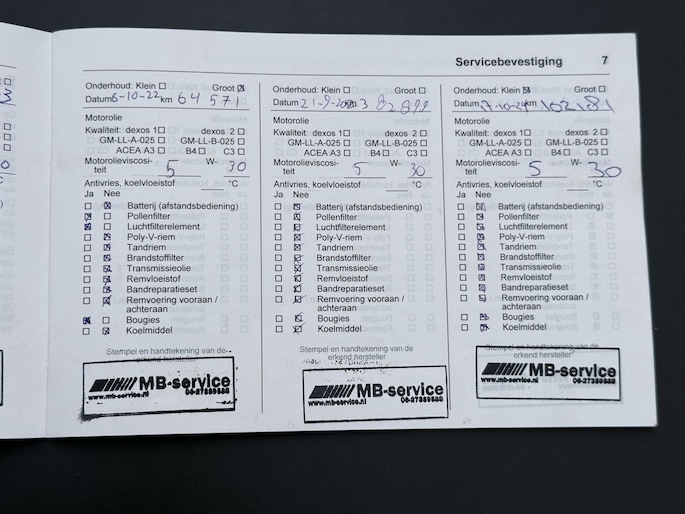 Servicebevestiging 7
Onderhoud: Klein ☐ Groot ☒
Datum 6-10-22 km 64 571
Motorolie
Kwaliteit: dexos 1 ☐ dexos 2 ☐
GM-LL-A-025 ☐ GM-LL-B-025 ☐
ACEA A3 ☐ B4 ☐ C3 ☐
Motorolieviscosi-
teit 5 W- 30
Antivries, koelvloeistof °C
Ja Nee
☐ ☒ Batterij (afstandsbediening)
☒ ☐ Pollenfilter
☒ ☐ Luchtfilterelement
☐ ☒ Poly-V-riem
☐ ☒ Tandriem
☐ ☒ Brandstoffilter
☐ ☒ Transmissieolie
☐ ☒ Remvloeistof
☐ ☒ Bandreparatieset
☐ ☒ Remvoering vooraan /
achteraan
☒ ☐ Bougies
☐ ☒ Koelmiddel
Stempel en handtekening van de
erkend hersteller
MB-service
www.mb-service.nl
Onderhoud: Klein ☐ Groot ☐
Datum 21-9- km
Motorolie
Kwaliteit: dexos 1 ☐ dexos 2 ☐
GM-LL-A-025 ☐ GM-LL-B-025 ☐
ACEA A3 ☐ B4 ☐ C3 ☐
Motorolieviscosi-
teit 5 W- 30
Antivries, koelvloeistof °C
Ja Nee
☐ ☒ Batterij (afstandsbediening)
☐ ☒ Pollenfilter
☐ ☒ Luchtfilterelement
☐ ☒ Poly-V-riem
☐ ☒ Tandriem
☐ ☒ Brandstoffilter
☐ ☒ Transmissieolie
☐ ☒ Remvloeistof
☐ ☒ Bandreparatieset
☐ ☒ Remvoering vooraan /
achteraan
☐ ☒ Bougies
☐ ☒ Koelmiddel
Stempel en handtekening van de
erkend hersteller
MB-service
www.mb-service.nl
Onderhoud: Klein ☒ Groot ☐
Datum km 102181
Motorolie
Kwaliteit: dexos 1 ☐ dexos 2 ☐
GM-LL-A-025 ☐ GM-LL-B-025 ☐
ACEA A3 ☐ B4 ☐ C3 ☐
Motorolieviscosi-
teit 5 W- 30
Antivries, koelvloeistof °C
Ja Nee
☐ ☒ Batterij (afstandsbediening)
☐ ☒ Pollenfilter
☐ ☒ Luchtfilterelement
☐ ☒ Poly-V-riem
☐ ☒ Tandriem
☐ ☒ Brandstoffilter
☐ ☒ Transmissieolie
☐ ☒ Remvloeistof
☐ ☒ Bandreparatieset
☐ ☒ Remvoering vooraan /
achteraan
☐ ☒ Bougies
☐ ☒ Koelmiddel
Stempel en handtekening van de
erkend hersteller
MB-service
www.mb-service.nl